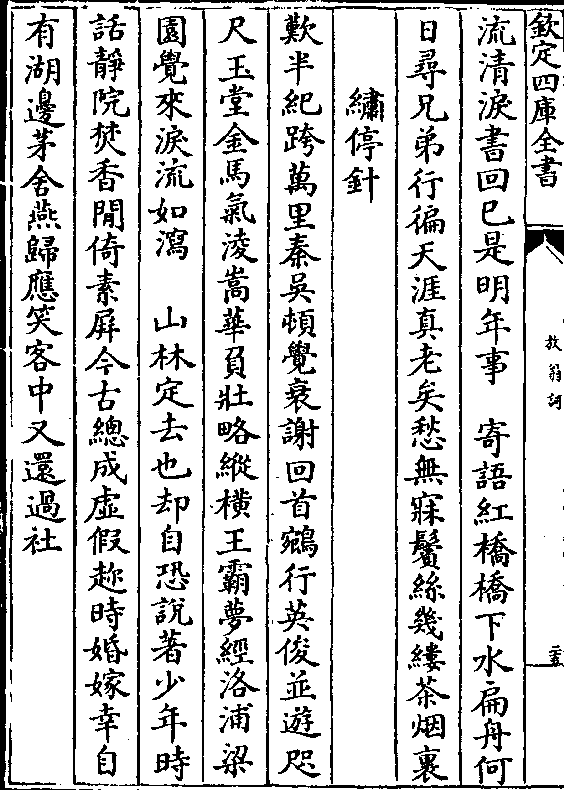 欽定四庫全書
放翁詞
二五
流清淚書回已是明年事　寄語紅橋橋下水扁舟何
日尋兄弟行徧天涯真老矣愁無寐鬢絲幾縷茶烟裏
繡停針
歎半紀跨萬里秦吳頓覺衰謝回首鵷行英俊並遊咫
尺玉堂金馬氣淩嵩華負壯略縱横王霸夢經洛浦梁
園覺來淚流如瀉　山林定去也却自恐說著少年時
話靜院焚香閒倚素屏今古總成虛假趂時婚嫁幸自
有湖邊茅舍燕歸應笑客中又還過社